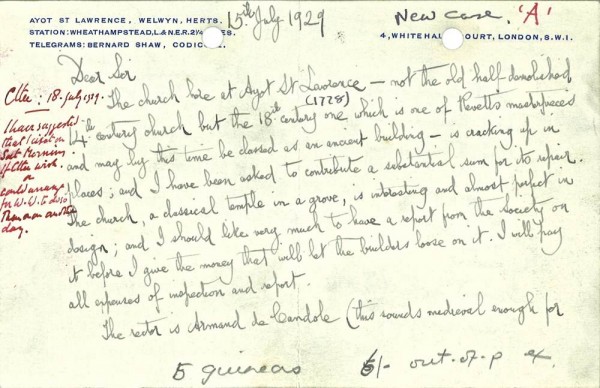 AYOT ST LAWRENCE, WELWYN, HERTS.
STATION: WHEATHAMPSTEAD, L.& N.E.R. 2¼ MILES.
TELEGRAMS: BERNARD SHAW, CODICOTE.
15th July 1929
New case. 'A'
4, WHITEHALL COURT, LONDON, S.W.1.
Dear Sir
The church here at Ayot St Lawrence – not the old half demolished
14th century church but the 18th century (1778) one which is one of Revett's masterpieces
and may by this time be classed as an ancient building – is cracking up in
places; and I have been asked to contribute a substantial sum for its repair.
The church, a classical temple in a grove, is interesting and almost perfect in
design; and I should like very much to have a report from the Society on
it before I give the money that will let the builders loose on it. I will pay
all expenses of inspection and report.
The rector is Armand de Candole (this sounds medieval enough for
Cttee: 18. July 1929.
I have suggested
that I visit on
Sat Morning
if Cttee wish
or
could arrange
for W.W. to do so
on another
day.
5 guineas
5/- out-of-p ex.